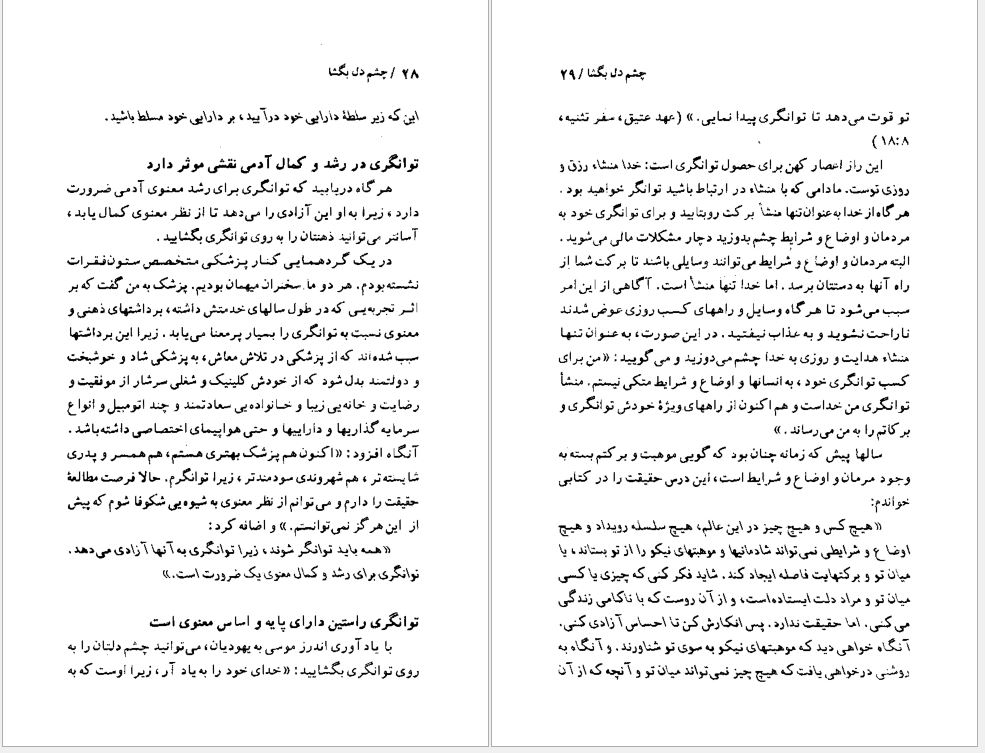 ۲۸ / چشم دل بگشا
این که زیر سلطهٔ دارایی خود درآیید، بر دارایی خود مسلط باشید.
توانگری در رشد و کمال آدمی نقشی موثر دارد
هرگاه دریابید که توانگری برای رشد معنوی آدمی ضرورت
دارد، زیرا به او این آزادی را می‌دهد تا از نظر معنوی کمال یابد،
آسانتر می‌توانید ذهنتان را به روی توانگری بگشایید.
در یک گردهمایی کنار پزشکی متخصص ستون‌فقرات
نشسته‌بودم. هر دو ما سخنران میهمان بودیم. پزشک به من گفت که بر
اثر تجربه‌یی که در طول سالهای خدمتش داشته، برداشتهای ذهنی و
معنوی نسبت به توانگری را بسیار پرمعنا می‌یابد. زیرا این برداشتها
سبب شده‌اند که از پزشکی در تلاش معاش، به پزشکی شاد و خوشبخت
و دولتمند بدل شود که از خودش کلینیک و شغلی سرشار از موفقیت و
رضایت و خانه‌یی زیبا و خانواده‌یی سعادتمند و چند اتومبیل و انواع
سرمایه گذاریها و داراییها و حتی هواپیمای اختصاصی داشته‌باشد.
آنگاه افزود: «اکنون هم پزشک بهتری هستم، هم همسر و پدری
شایسته‌تر، هم شهروندی سودمندتر، زیرا توانگرم. حالا فرصت مطالعهٔ
حقیقت را دارم و می‌توانم از نظر معنوی به شیوه‌یی شکوفا شوم که پیش
از این هرگز نمی‌توانستم.» و اضافه کرد:
«همه باید توانگر شوند، زیرا توانگری به آنها آزادی می‌دهد.
توانگری برای رشد و کمال معنوی یک ضرورت است.»
توانگری راستین دارای پایه و اساس معنوی است
با یاد آوری اندرز موسی به یهودیان، می‌توانید چشم دلتان را به
روی توانگری بگشایید: «خدای خود را به یاد آر، زیرا اوست که به
چشم دل بگشا / ۲۹
تو قوت می‌دهد تا توانگری پیدا نمایی.» (عهد عتیق، سفر تثنیه،
۱۸:۸)
این راز اعصار کهن برای حصول توانگری است: خدا منشاء رزق و
روزی توست. مادامی که با منشاء در ارتباط باشید توانگر خواهید بود.
هرگاه از خدا به‌عنوان تنها منشأ برکت روبتابید و برای توانگری خود به
مردمان و اوضاع و شرایط چشم بدوزید دچار مشکلات مالی می‌شوید.
البته مردمان و اوضاع و شرایط می‌توانند وسایلی باشند تا برکت شما از
راه آنها به دستتان برسد. اما خدا تنها منشأ است. آگاهی از این امر
سبب می‌شود تا هرگاه وسایل و راههای کسب روزی عوض شدند
ناراحت نشوید و به عذاب نیفتید. در این صورت، به عنوان تنها
منشاء هدایت و روزی به خدا چشم می‌دوزید و می‌گویید: «من برای
کسب توانگری خود، به انسانها و اوضاع و شرایط متکی نیستم. منشأ
توانگری من خداست و هم اکنون از راههای ویژهٔ خودش توانگری و
برکاتم را به من می‌رساند.»
سالها پیش که زمانه چنان بود که گویی موهبت و برکتم بسته به
وجود مرمان و اوضاع و شرایط است، این درس حقیقت را در کتابی
خواندم:
«هیچ کس و هیچ چیز در این عالم، هیچ سلسله رویداد و هیچ
اوضاع و شرایطی نمی‌تواند شادمانیها و موهبتهای نیکو را از تو بستاند، یا
میان تو و برکتهایت فاصله ایجاد کند. شاید فکر کنی که چیزی یا کسی
میان تو و مراد دلت ایستاده‌است، و از آن روست که با ناکامی زندگی
می‌کنی. اما حقیقت ندارد. پس انکارش کن تا احساس آزادی کنی.
آنگاه خواهی دید که موهبتهای نیکو به سوی تو شناورند. و آنگاه به
روشنی درخواهی یافت که هیچ چیز نمی‌تواند میان تو و آنچه که از آن